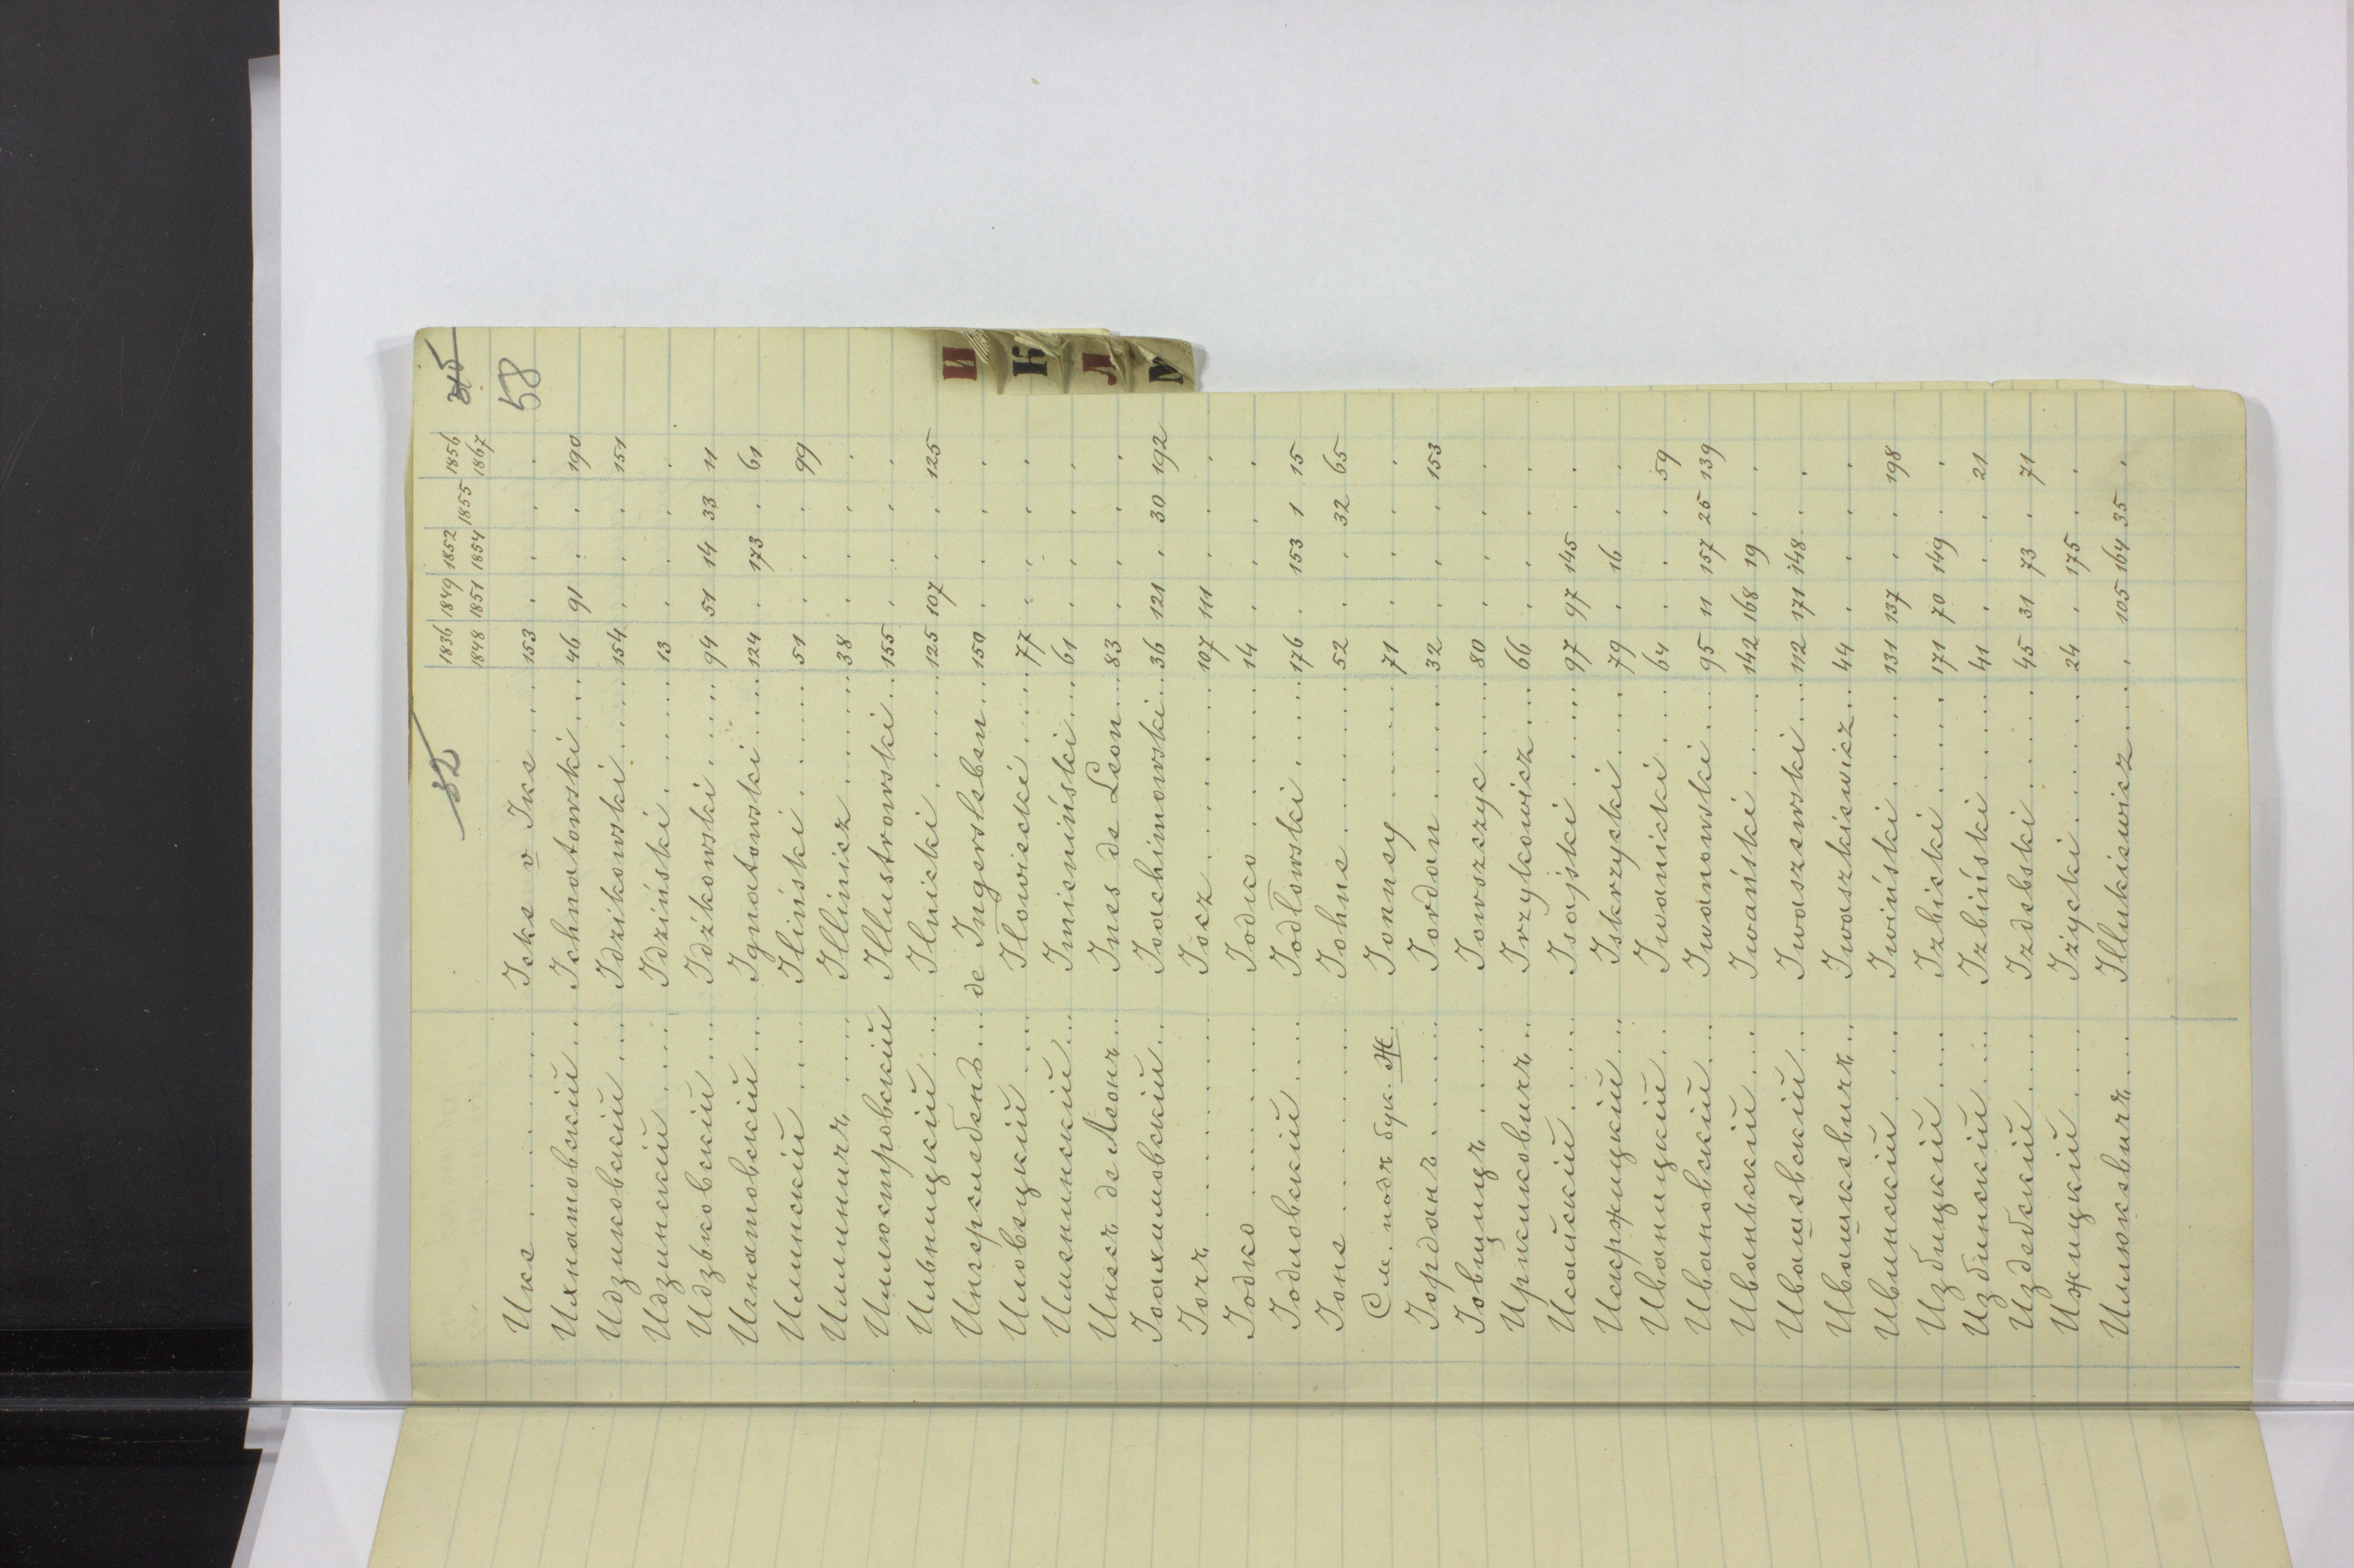 52
315
58
1836 1849 1852 1855 1856
1848 1851 1854 1867
Ике . . . . . Icke v Ike . . . 153 . . . .
Ихнатовскій . . Ichnatowski . . . 46 91 . . 190
Идзиковскій . . . Idzikowski . . . 154 . . . 151
Идзинскій . . . . Idziński . . . . 13 . . . .
Идзьковскій . . . Idźkowski . . . . 94 51 14 33 11
Игнатовскій . . . Ignatowski . . . 124 . 173 . 61
Илинскій . . . . Iliński . . . . 51 . . . 99
Иллиничъ . . . . Illinicz . . . . 38 . . . .
Иллюстровскій Illustrowski . . . 155 . . . .
Ильницкій . . . Ilnicki . . . . 125 107 . . 125
Ингерслебенъ . . . de Ingersleben . . . 150 . . . .
Иловецкій . . . Iłowiecki . . . . 77 . . . .
Имениискій . . . Imieniński . . . 61 . . . .
Инесъ де Леонъ . . . Ines de Leon . . . 83 . . . .
Іоахимовскій . . . Ioachimowski . . . 36 121 . 30 192
Іочъ . . . . . Iocz . . . . . 107 111 . . .
Іодко . . . . . Iodko . . . . . 14 . . . .
Іодловскій . . . . Iodłowski . . . . 176 . 153 1 15
Іоне . . . . . Iohne . . . . . 52 . . 32 65
См. подъ бук. Ж. Ionney . . . . 71 . . . .
Іорданъ . . . . Iordan . . . . 32 . . . 153
Іовщицъ . . . . Iowszczyc . . . . 80 . . . .
Иржиковичъ . . Irzykowicz . . . 66 . . . .
Исайскій . . . . Isajski . . . . 97 97 145 . .
Искржицкій . . Iskrzycki . . . . 79 . 16 . .
Иваницкій . . . Iwanicki . . . . 64 . . . 59
Ивановскій . . . Iwanowski . . . 95 11 157 25 139
Иваньскій . . . Iwański . . . . 142 168 19 . .
Ивашевскій . . . Iwaszewski . . . 112 171 148 . .
Ивашкевичъ . . . Iwaszkiewicz . . 44 . . . .
Ивинскій . . . . Iwiński . . . . 131 137 . . 198
Избицкій . . . . Izbicki . . . . 171 70 149 . .
Избинскій . . . . Izbiński . . . . 41 . . . 21
Издебскій . . . . Izdebski . . . . 45 31 73 . 71
Ижицкій . . . . Iżycki . . . . 24 . 175 . .
Иллюкевичъ . . . Illukiewicz . . . . 105 164 35 .
И
К
Л
М